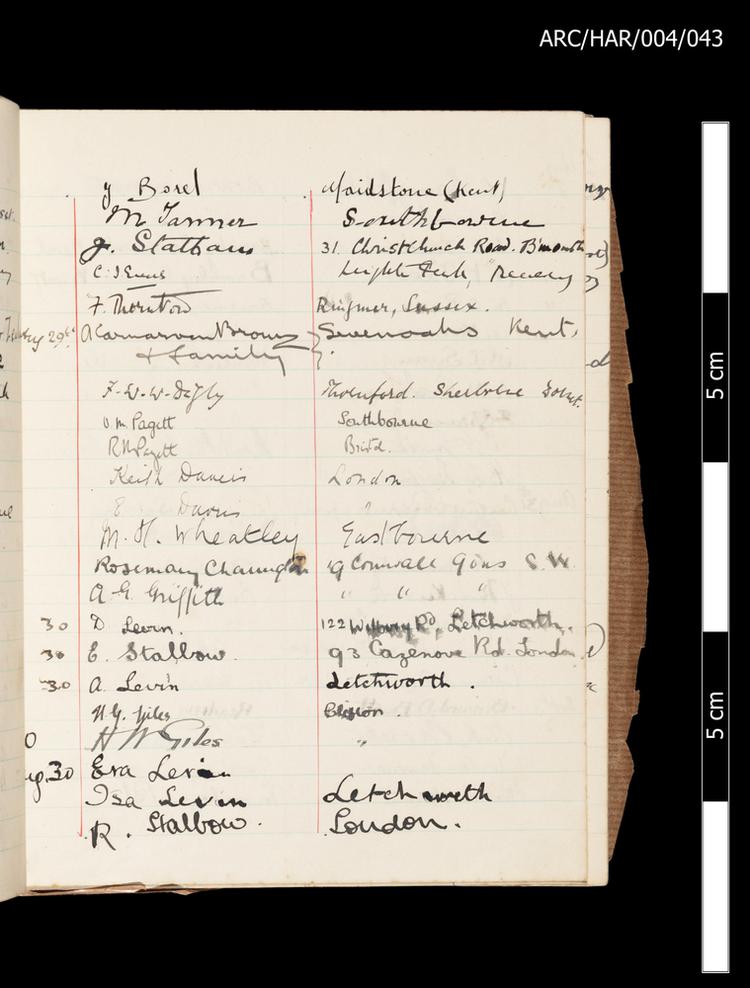 ARC/HAR/004/043
J Borel Maidstone (Kent)
M Tanner Southbourne
J. Statham 31. Christchurch Road. B'mouth
C. J Evans
F. Thornton Ringmer, Sussex.
29th A Carnarvon Brown Sevenoaks Kent.
& family
F-W-W-Digby Thornford. Sherborne Dorset.
V M Pagett Southbourne
R N Pagett Bristol.
Keith Davies London
E Davies "
M. H. Wheatley Eastbourne
Rosemary Charrington 19 Cornwall Gdns S.W.
A-G. Griffith " " "
30 D Levin. 122 Wilbury Rd, Letchworth.
30 E. Stalbow. 93 Cazenove Rd. London.
30 A. Levin Letchworth.
H. G. Giles
H W Giles "
30 Eva Levin
Isa Levin Letchworth
R. Stalbow. London.
5 cm
5 cm